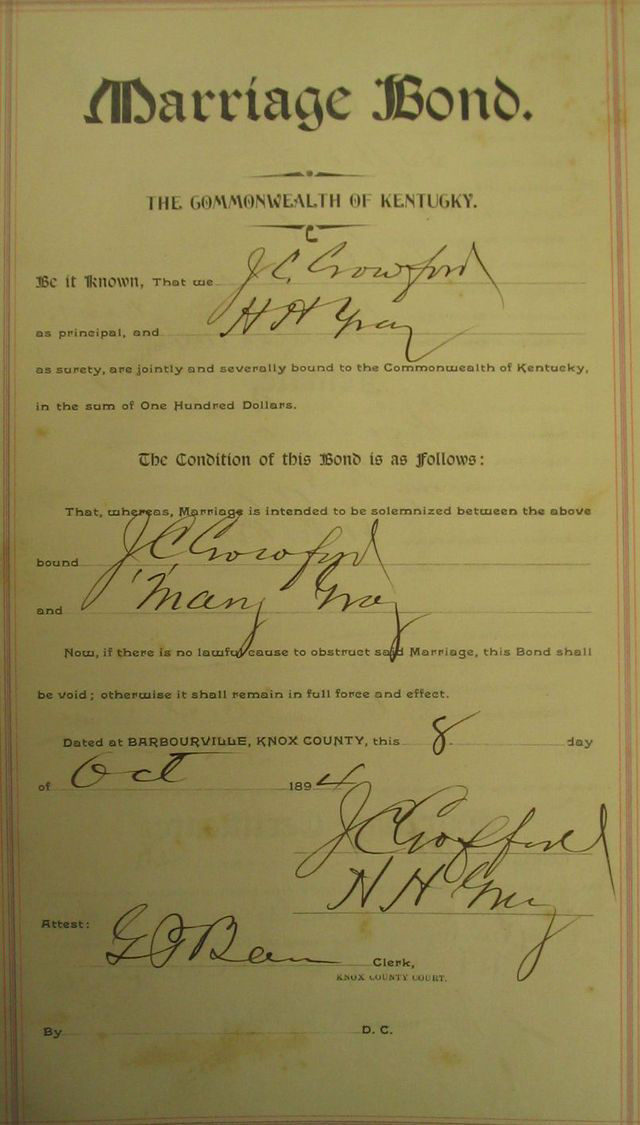 Marriage Bond.
THE COMMONWEALTH OF KENTUCKY.
Be it Known, That we J. C. Crowford
as principal, and H H Gray
as surety, are jointly and severally bound to the Commonwealth of Kentucky,
in the sum of One Hundred Dollars.
The Condition of this Bond is as follows:
That, whereas, Marriage is intended to be solemnized between the above
bound J C Crowford
and Mary Gray
Now, if there is no lawful cause to obstruct said Marriage, this Bond shall
be void; otherwise it shall remain in full force and effect.
Dated at BARBOURVILLE, KNOX COUNTY, this 8. day
of Oct 1894
J C Crofford
H H Gray
Attest:
G F Bain Clerk,
KNOX COUNTY COURT.
By D. C.